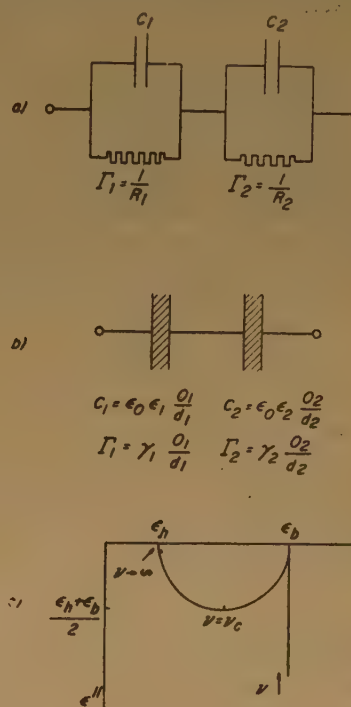 C₁ C₂
a)
Γ₁ = 1/R₁ Γ₂ = 1/R₂
b)
C₁ = ε₀ ε₁ O₁/d₁ C₂ = ε₀ ε₂ O₂/d₂
Γ₁ = γ₁ O₁/d₁ Γ₂ = γ₂ O₂/d₂
εₕ ε_b
ν → ∞
(εₕ + ε_b)/2 ν = ν_c
ε" ν